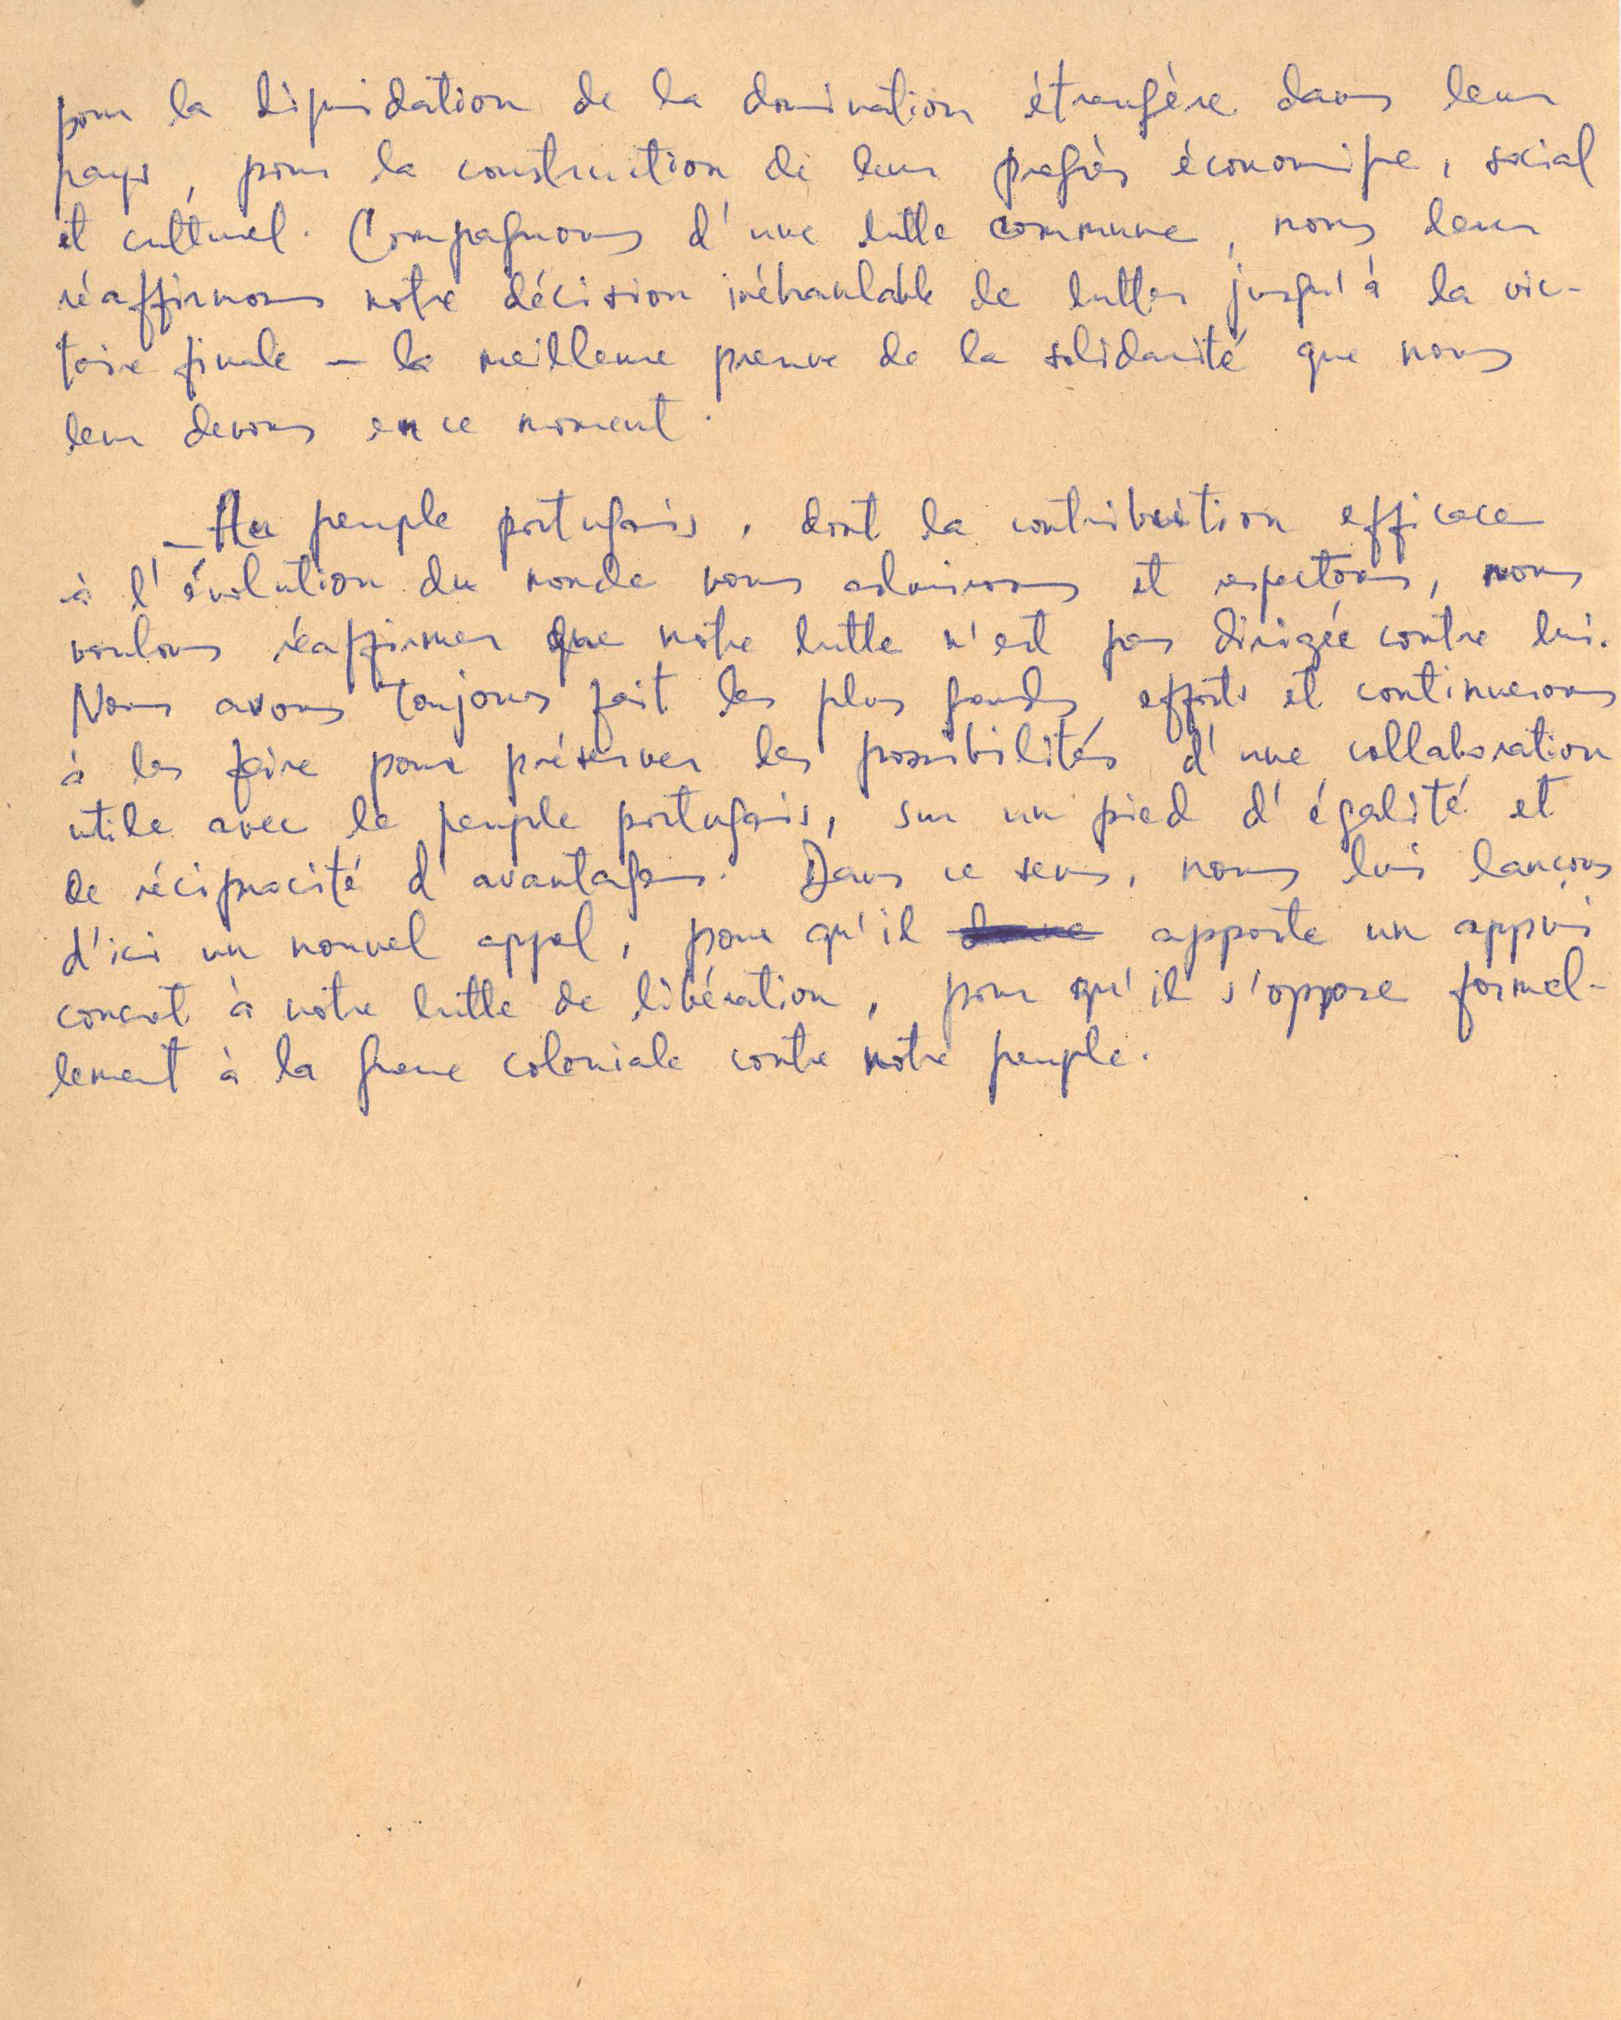 pour la liquidation de la domination étrangère dans leur
pays, pour la construction de leur progrès économique, social
et culturel. Compagnons d'une lutte commune, nous leur
réaffirmons notre décision inébranlable de lutter jusqu'à la vic-
toire finale — la meilleure preuve de la solidarité que nous
leur devons en ce moment.
— Au peuple portugais, dont la contribution efficace
à l'évolution du monde nous admirons et respectons, nous
voulons réaffirmer que notre lutte n'est pas dirigée contre lui.
Nous avons toujours fait les plus grands efforts et continuerons
à les faire pour préserver les possibilités d'une collaboration
utile avec le peuple portugais, sur un pied d'égalité et
de réciprocité d'avantages. Dans ce sens, nous lui lançons
d'ici un nouvel appel, pour qu'il apporte un appui
concret à notre lutte de libération, pour qu'il s'oppose formel-
lement à la guerre coloniale contre notre peuple.